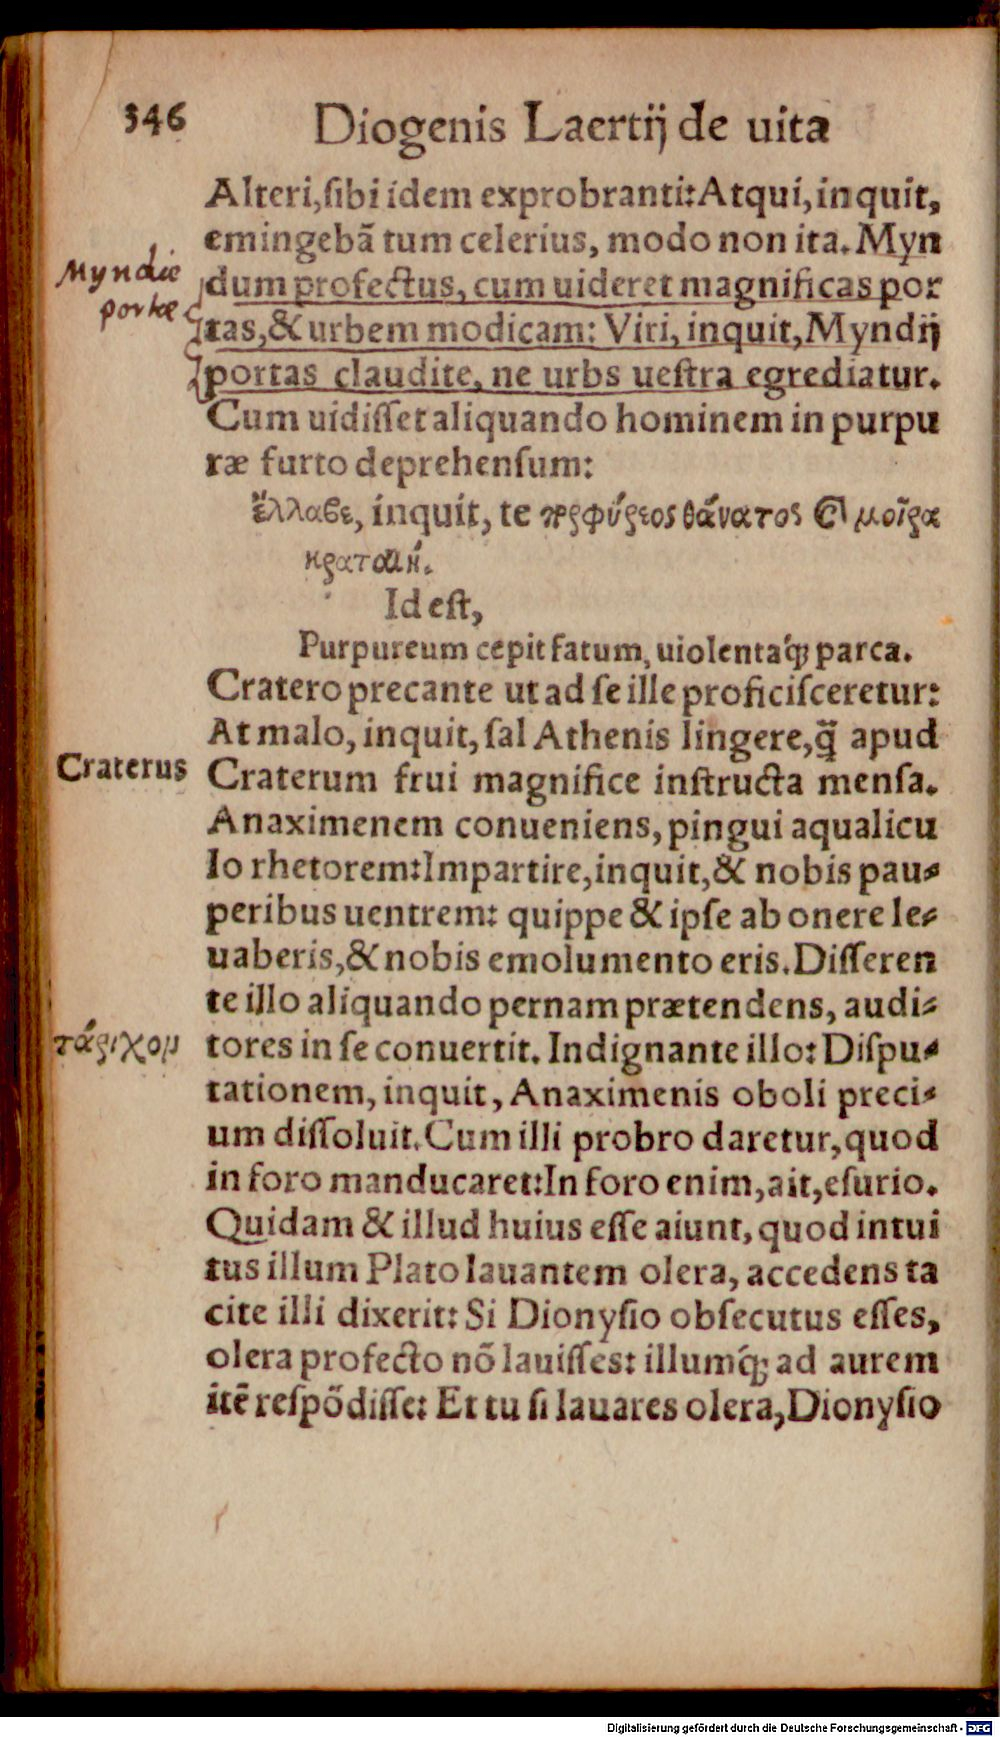 346 Diogenis Laertij de uita
Alteri, sibi idem exprobranti: Atqui, inquit,
emingebā tum celerius, modo non ita. Myn
Myndiæ
dum profectus, cum uideret magnificas por
portæ
tas, & urbem modicam: Viri, inquit, Myndij
portas claudite, ne urbs uestra egrediatur.
Cum uidisset aliquando hominem in purpu
ræ furto deprehensum:
ἔλλαβε, inquit, te πορφύρεος θάνατος καὶ μοῖρα
κραταιή.
Id est,
Purpureum cepit fatum, uiolentaq́ꝫ parca.
Cratero precante ut ad se ille proficisceretur:
At malo, inquit, sal Athenis lingere, q̃ apud
Craterus
Craterum frui magnifice instructa mensa.
Anaximenem conueniens, pingui aqualicu
lo rhetorem: Impartire, inquit, & nobis pau-
peribus uentrem: quippe & ipse ab onere le-
uaberis, & nobis emolumento eris. Disseren
te illo aliquando pernam prætendens, audi-
τάριχον
tores in se conuertit. Indignante illo: Dispu-
tationem, inquit, Anaximenis oboli preci-
um dissoluit. Cum illi probro daretur, quod
in foro manducaret: In foro enim, ait, esurio.
Quidam & illud huius esse aiunt, quod intui
tus illum Plato lauantem olera, accedens ta
cite illi dixerit: Si Dionysio obsecutus esses,
olera profecto nō lauisses: illumq́ꝫ ad aurem
itē respōdisse: Et tu si lauares olera, Dionysio
Digitalisierung gefördert durch die Deutsche Forschungsgemeinschaft - DFG